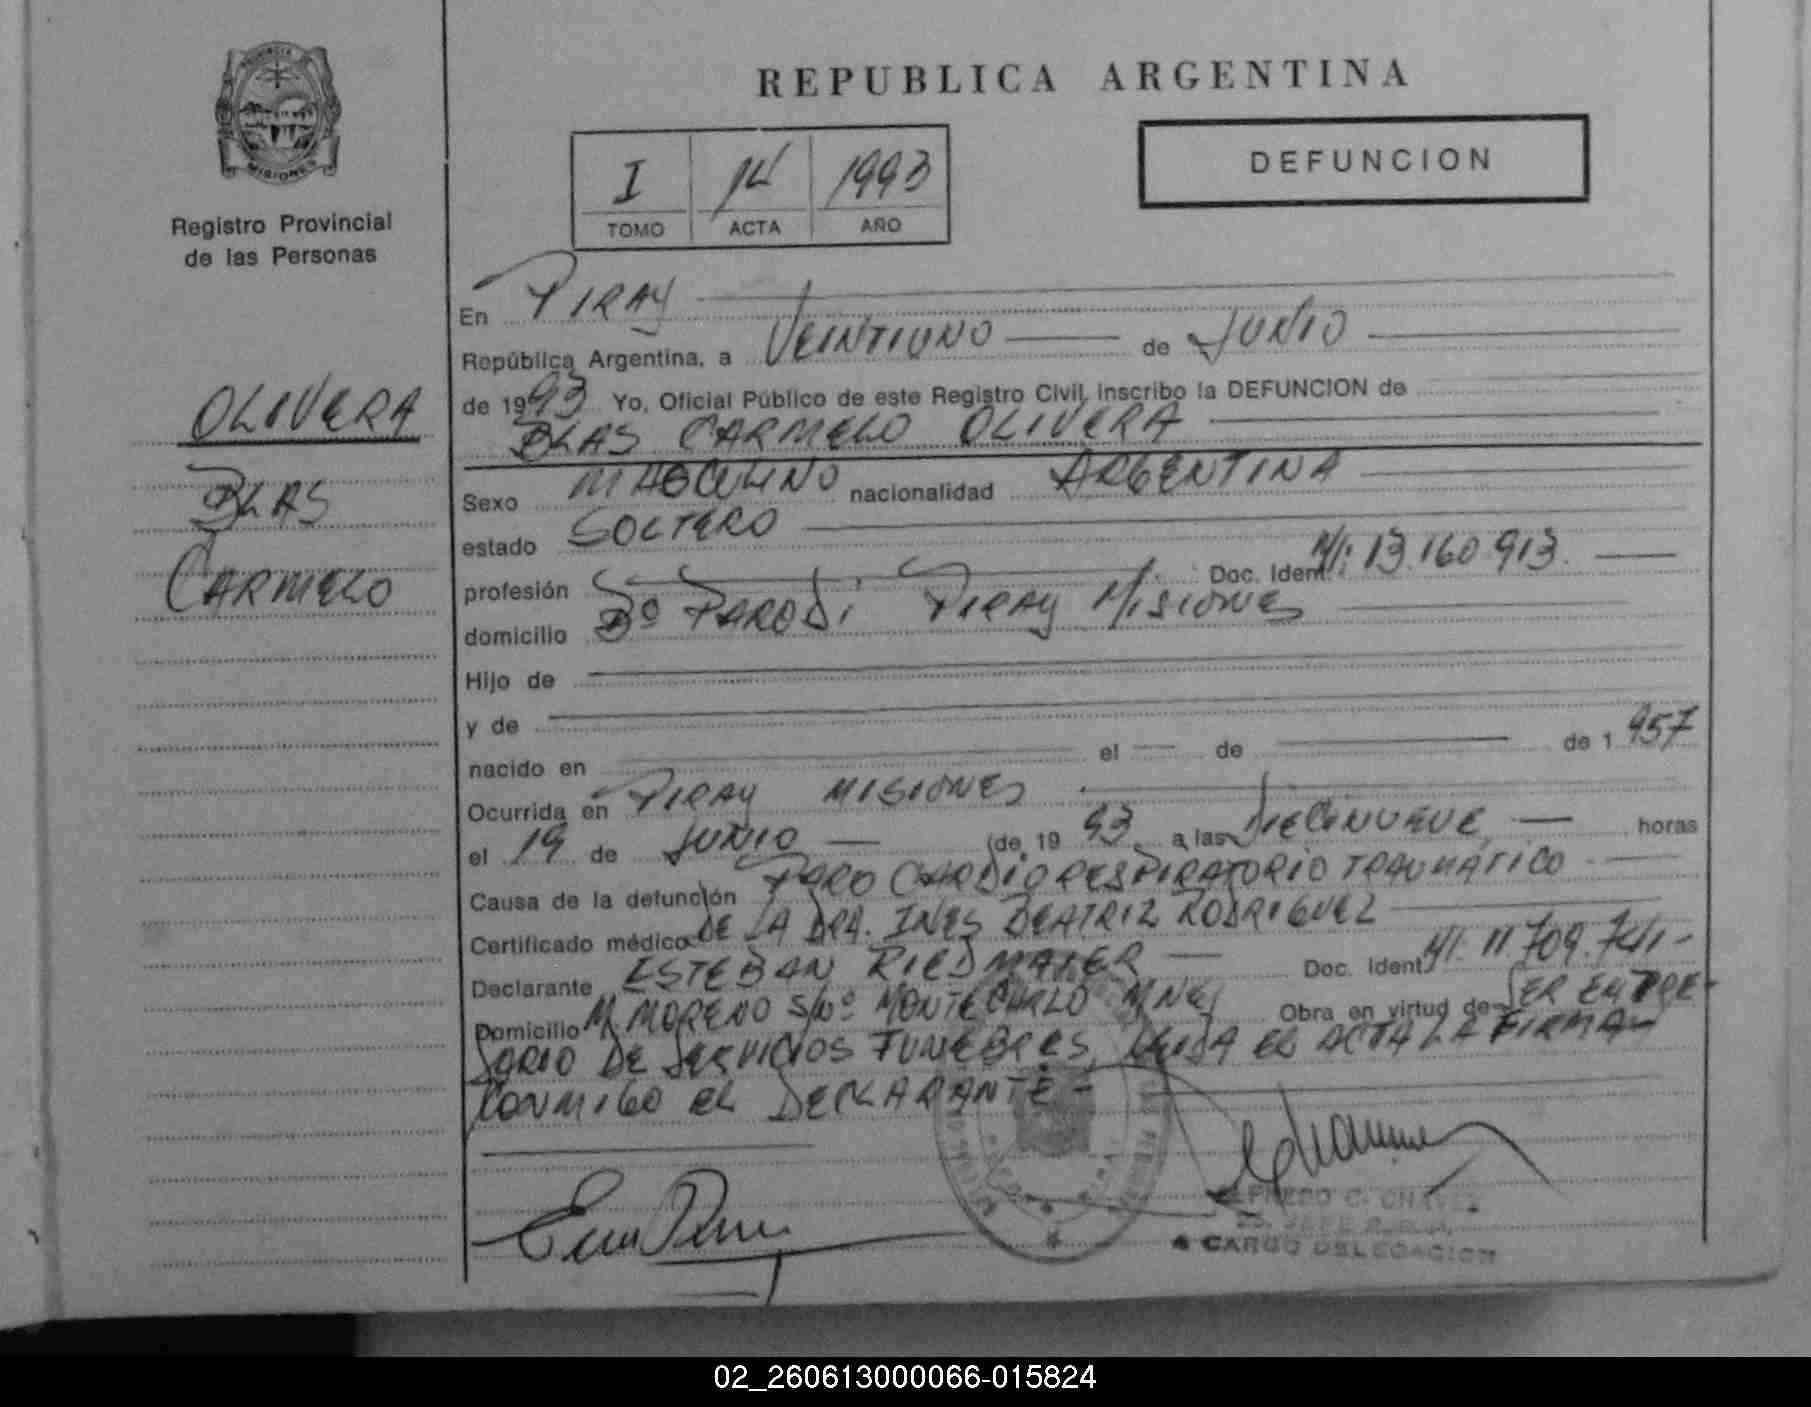 PROVINCIA DE
MISIONES
Registro Provincial
de las Personas
OLIVERA
BLAS
CARMELO
REPUBLICA ARGENTINA
DEFUNCION
I 14 1993
TOMO ACTA AÑO
En PIRAY
República Argentina, a VEINTIUNO de JUNIO
de 1993 Yo, Oficial Público de este Registro Civil, inscribo la DEFUNCION de
BLAS CARMELO OLIVERA
Sexo MASCULINO nacionalidad ARGENTINA
estado SOLTERO
profesión Doc. Ident. MI: 13.160.913.
domicilio Bº PARODI PIRAY MISIONES
Hijo de
y de
nacido en el de de 1957
Ocurrida en PIRAY MISIONES
el 19 de JUNIO de 1993 a las DIECINUEVE horas
Causa de la defunción PARO CARDIORESPIRATORIO TRAUMATICO
Certificado médico DE LA DRA. INES BEATRIZ RODRIGUEZ
Declarante ESTEBAN RIEDMAIER Doc. Ident MI. 11.709.741-
Domicilio M. MORENO S/Nº MONTECARLO MNES Obra en virtud de SER EMPRE-
SARIO DE SERVICIOS FUNEBRES, LEIDA EL ACTA LA FIRMA-
CONMIGO EL DECLARANTE-
ALFREDO C. CHAVEZ
JEFE
A CARGO DELEGACION
02_260613000066-015824